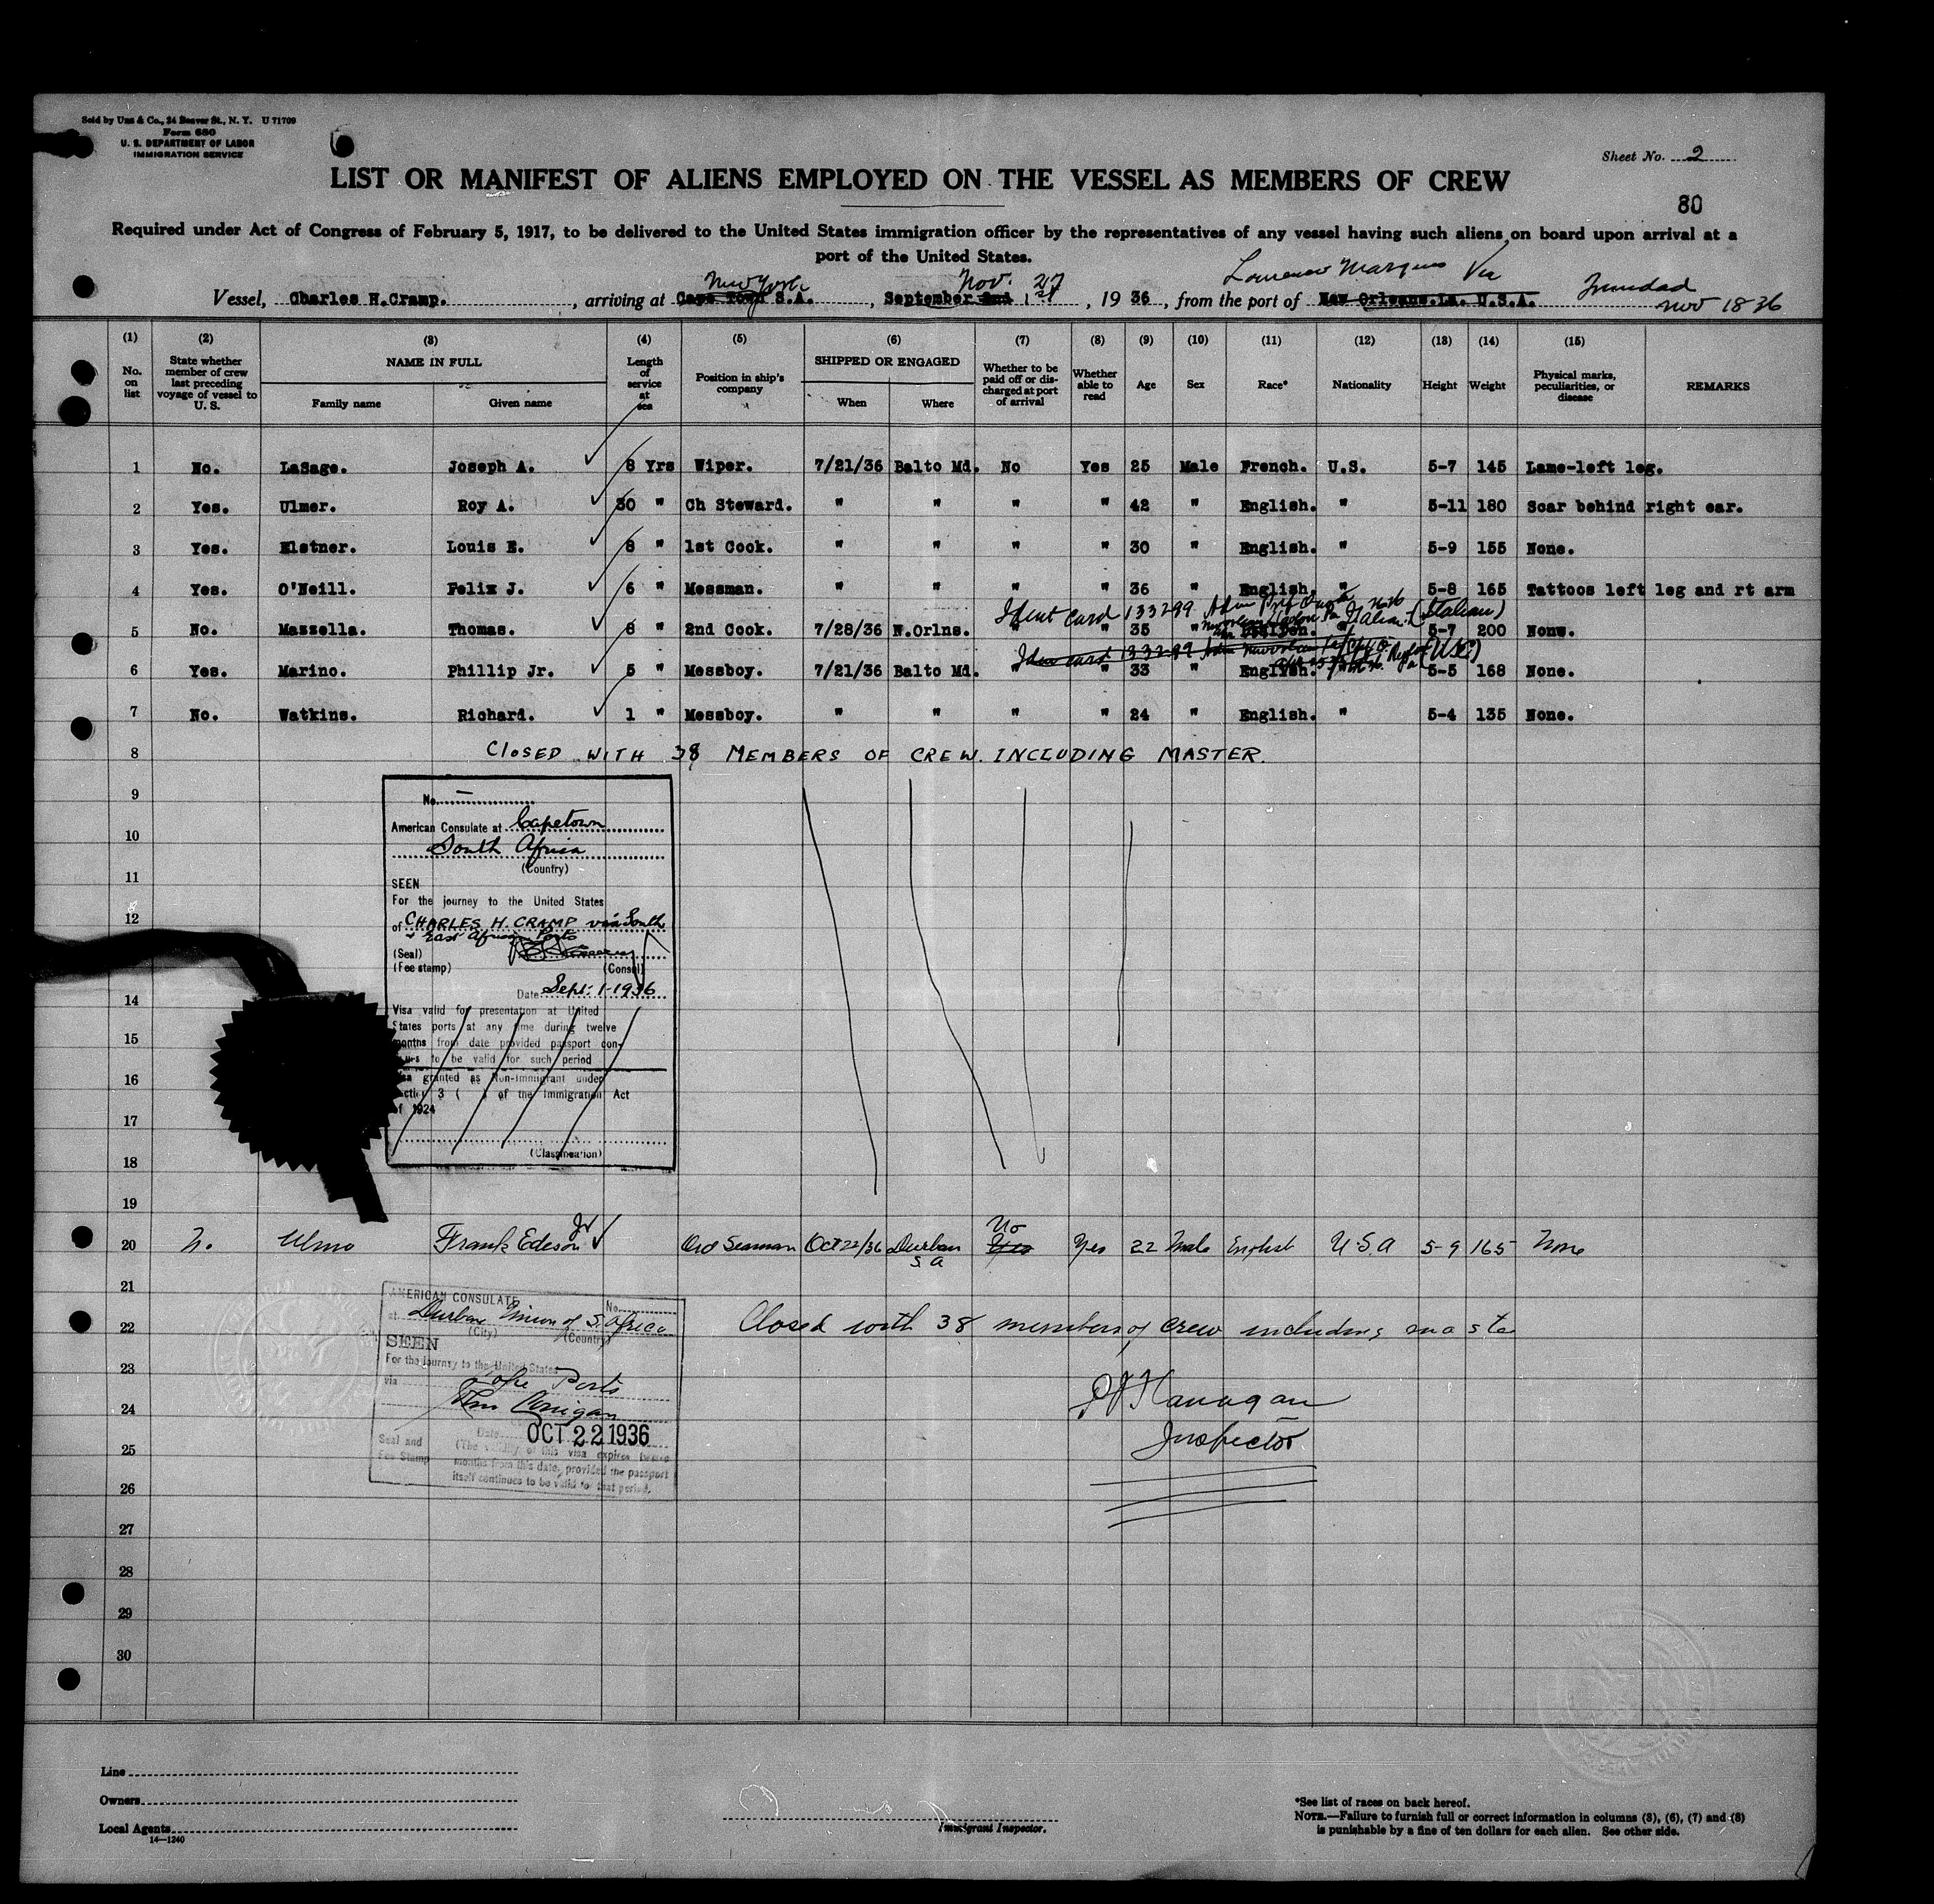 Sold by Unz & Co., 24 Beaver St., N. Y. U 71709
Form 680
U. S. DEPARTMENT OF LABOR
IMMIGRATION SERVICE
Sheet No. 2
LIST OR MANIFEST OF ALIENS EMPLOYED ON THE VESSEL AS MEMBERS OF CREW
80
Required under Act of Congress of February 5, 1917, to be delivered to the United States immigration officer by the representatives of any vessel having such aliens on board upon arrival at a
port of the United States.
New York Nov. 27 Lourenco Marques Via
Vessel, Charles H.Cramp. , arriving at Cape Town S.A. , September 2nd , 1936 , from the port of New Orleans.La. U.S.A. Trinidad
Nov 18 36
(1) (2) (3) (4) (5) (6) (7) (8) (9) (10) (11) (12) (13) (14) (15)
No. on list State whether member of crew last preceding voyage of vessel to U. S. NAME IN FULL Family name Given name Length of service at sea Position in ship's company SHIPPED OR ENGAGED When Where Whether to be paid off or discharged at port of arrival Whether able to read Age Sex Race* Nationality Height Weight Physical marks, peculiarities, or disease REMARKS
1 No. LaSage. Joseph A. 8 Yrs Wiper. 7/21/36 Balto Md. No Yes 25 Male French. U.S. 5-7 145 Lame-left leg.
2 Yes. Ulmer. Roy A. 30 " Ch Steward. " " " " 42 " English. " 5-11 180 Scar behind right ear.
3 Yes. Elstner. Louis E. 8 " 1st Cook. " " " " 30 " English. " 5-9 155 None.
4 Yes. O'Neill. Felix J. 6 " Messman. " " " " 36 " English. " 5-8 165 Tattoos left leg and rt arm
Ident card 133299 (Italian)
5 No. Mazzella. Thomas. 8 " 2nd Cook. 7/28/36 N.Orlns. " " 35 " Italian. 5-7 200 None.
Iden card 133299 (USC)
6 Yes. Marino. Phillip Jr. 5 " Messboy. 7/21/36 Balto Md. " " 33 " English. 5-5 168 None.
7 No. Watkins. Richard. 1 " Messboy. " " " " 24 " English. " 5-4 135 None.
8 CLOSED WITH 38 MEMBERS OF CREW. INCLUDING MASTER.
9
No.
American Consulate at Capetown
10
South Africa
(Country)
11
SEEN
For the journey to the United States
12
of CHARLES H. CRAMP via South
+ East African Ports
(Seal)
(Fee stamp) (Consul)
Date Sept: 1-1936
14
Visa valid for presentation at United
States ports at any time during twelve
15
months from date provided passport con-
tinues to be valid for such period
16
Visa granted as Non-immigrant under
Section 3 ( ) of the Immigration Act
of 1924
17
(Classification)
18
19
20 No. Ulmo Frank Edeson Jr Ord Seaman Oct 22/36 Durban S.A Yes No Yes 22 Male English U.S.A 5-9 165 None
21
AMERICAN CONSULATE No.
at Durban Union of S. Africa
(City) (Country)
22 Closed with 38 members of crew including master
SEEN
For the journey to the United States
23
via Cape Ports
J J Flanagan
24
OCT 22 1936
Inspector
Date
Seal and
Fee Stamp
25
(The validity of this visa expires twelve
months from this date, provided the passport
itself continues to be valid for that period.
26
27
28
29
30
Line
Owners
Local Agents
14—1240
Immigrant Inspector.
*See list of races on back hereof.
NOTE.—Failure to furnish full or correct information in columns (3), (6), (7) and (8)
is punishable by a fine of ten dollars for each alien. See other side.